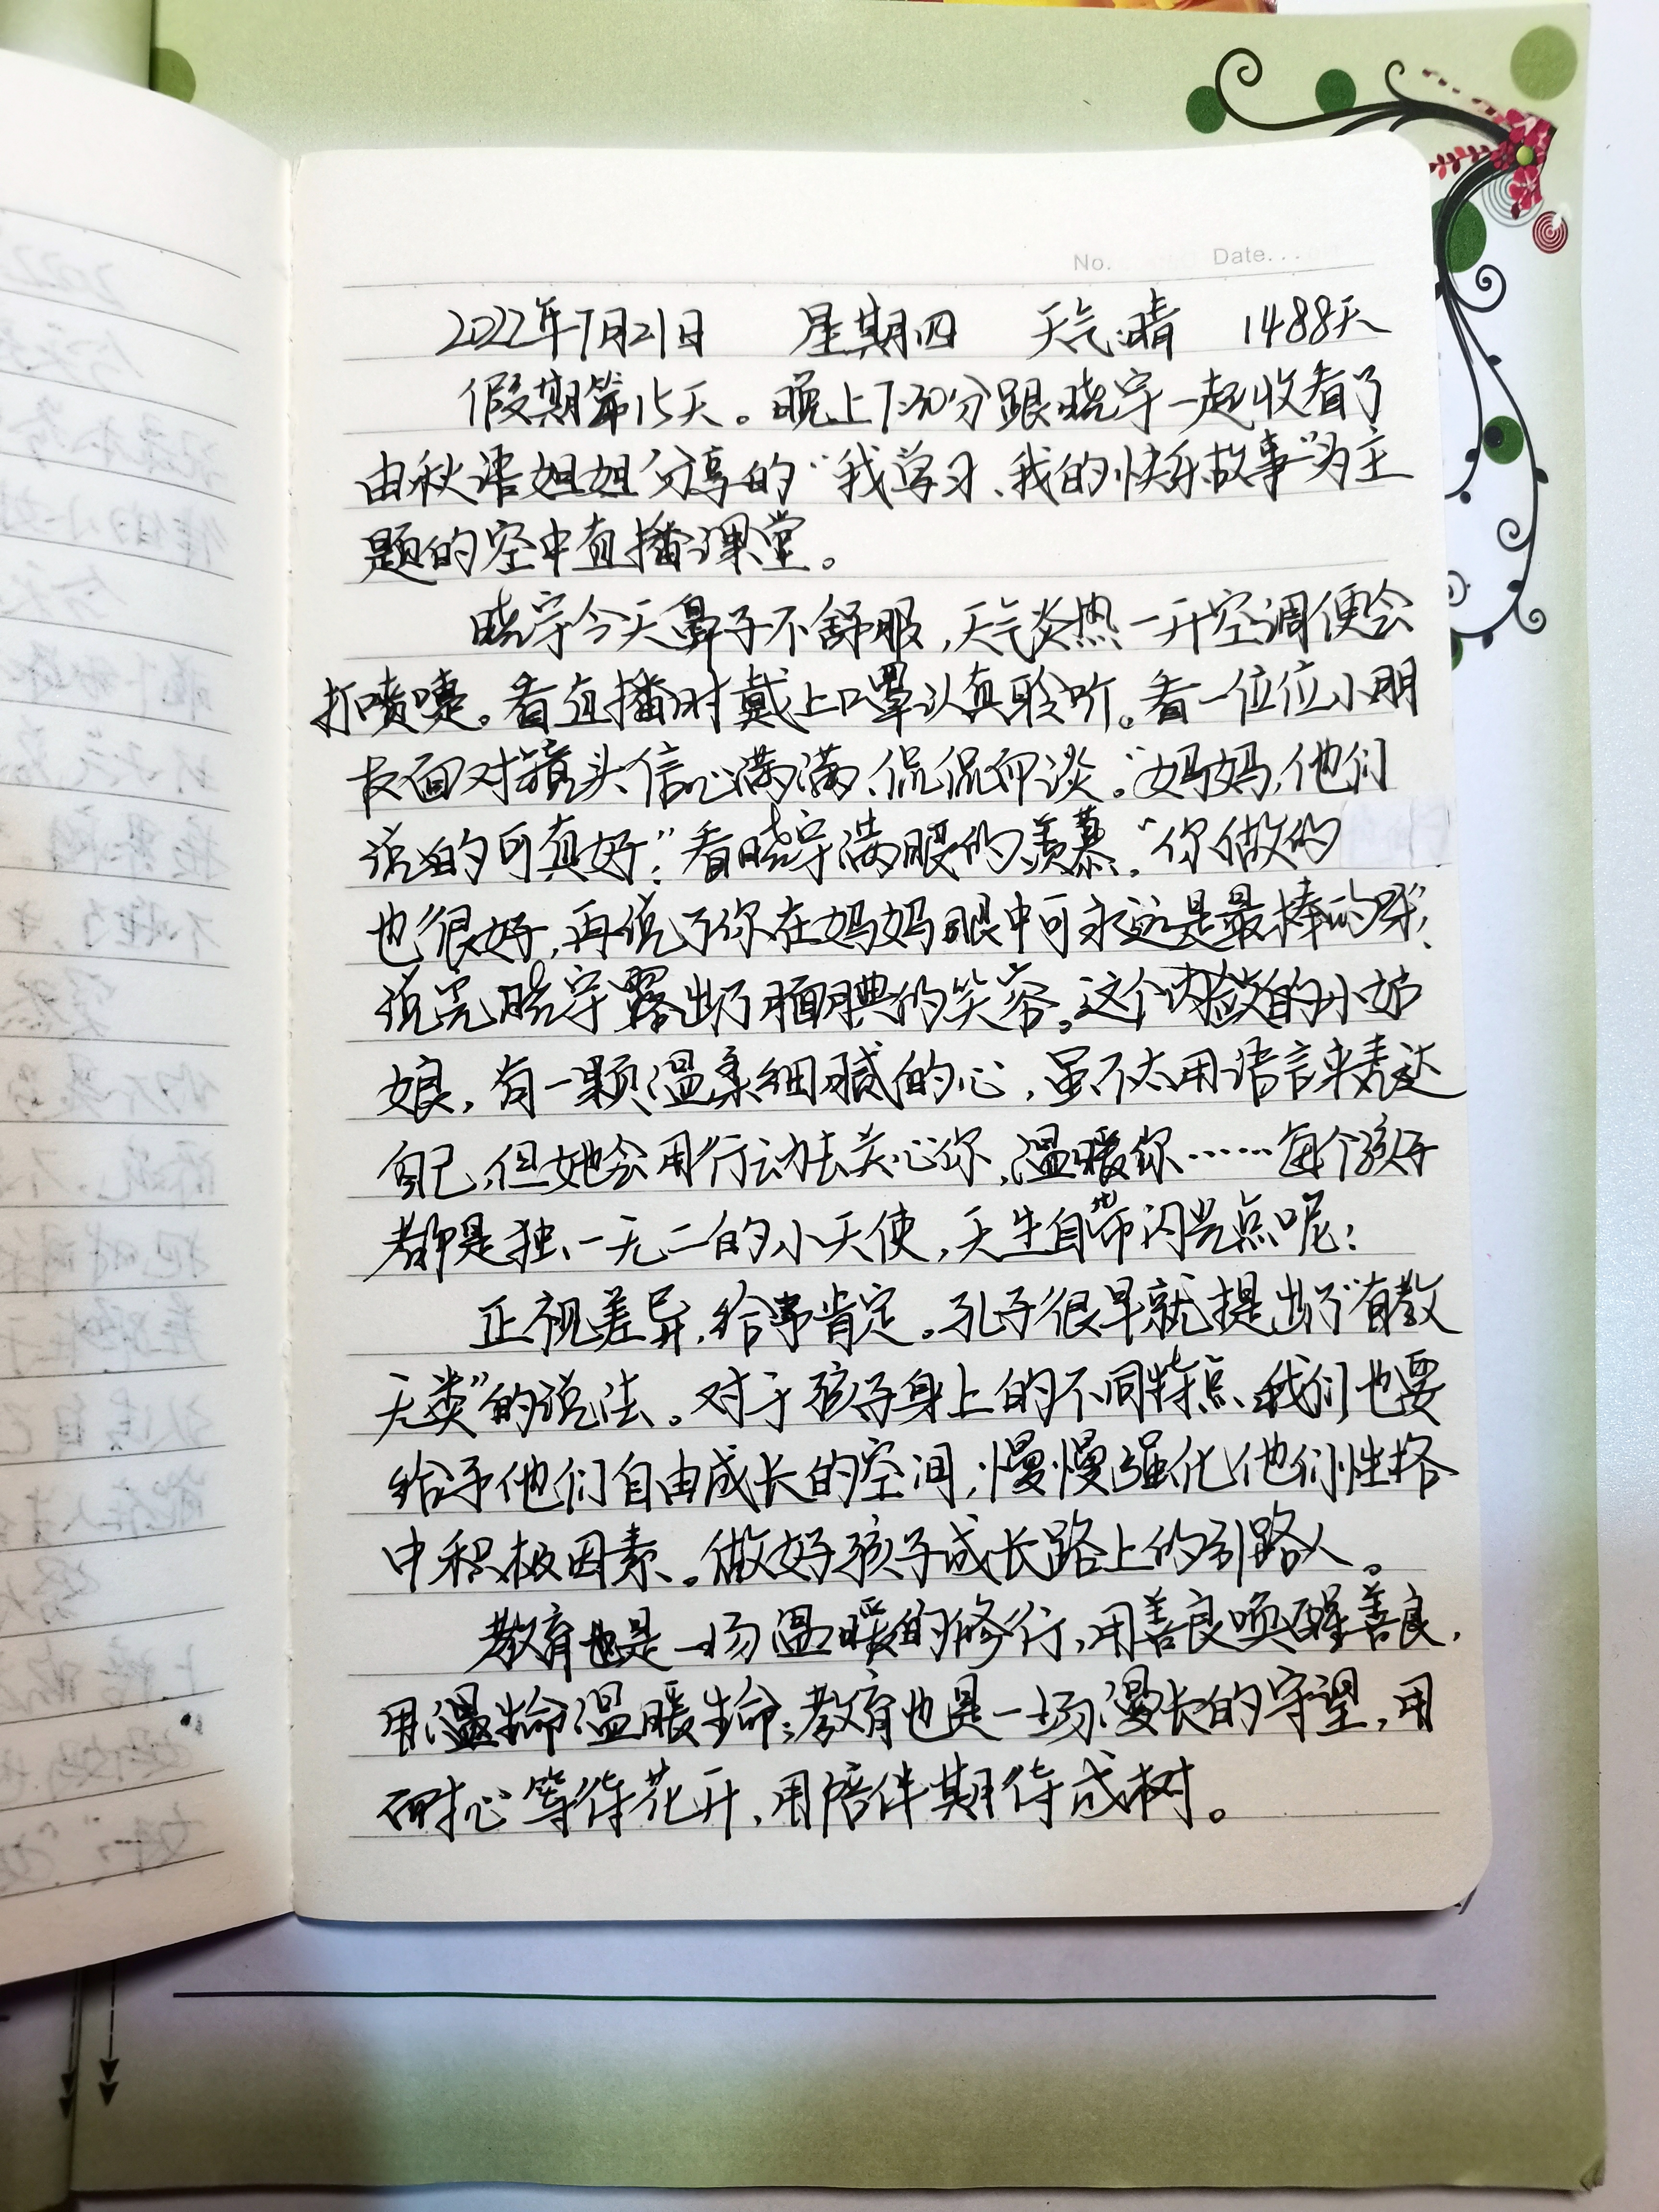 No. Date...
2022年7月21日 星期四 天气:晴 1488天
假期第15天。晚上7:30分跟晓宇一起收看了
由秋语姐姐分享的“我学习、我的快乐故事”为主
题的空中直播课堂。
晓宇今天鼻子不舒服,天气炎热一开空调便会
打喷嚏。看直播时戴上口罩认真聆听。看一位位小朋
友面对镜头信心满满、侃侃而谈。“妈妈,他们
说的可真好!”看晓宇满眼的羡慕。“你做的
也很好,再说了你在妈妈眼中可永远是最棒的呀”!
说完晓宇露出了腼腆的笑容。这个内敛的小姑
娘,有一颗温柔细腻的心,虽不太用语言来表达
自己,但她会用行动去关心你,温暖你……每个孩子
都是独一无二的小天使,天生自带闪光点呢!
正视差异,给予肯定。孔子很早就提出了“有教
无类”的说法。对于孩子身上的不同特点、我们也要
给予他们自由成长的空间,慢慢强化他们性格
中积极因素。做好孩子成长路上的引路人。
教育也是一场温暖的修行,用善良唤醒善良,
用温生命温暖生命;教育也是一场漫长的守望,用
耐心等待花开,用陪伴期待成树。